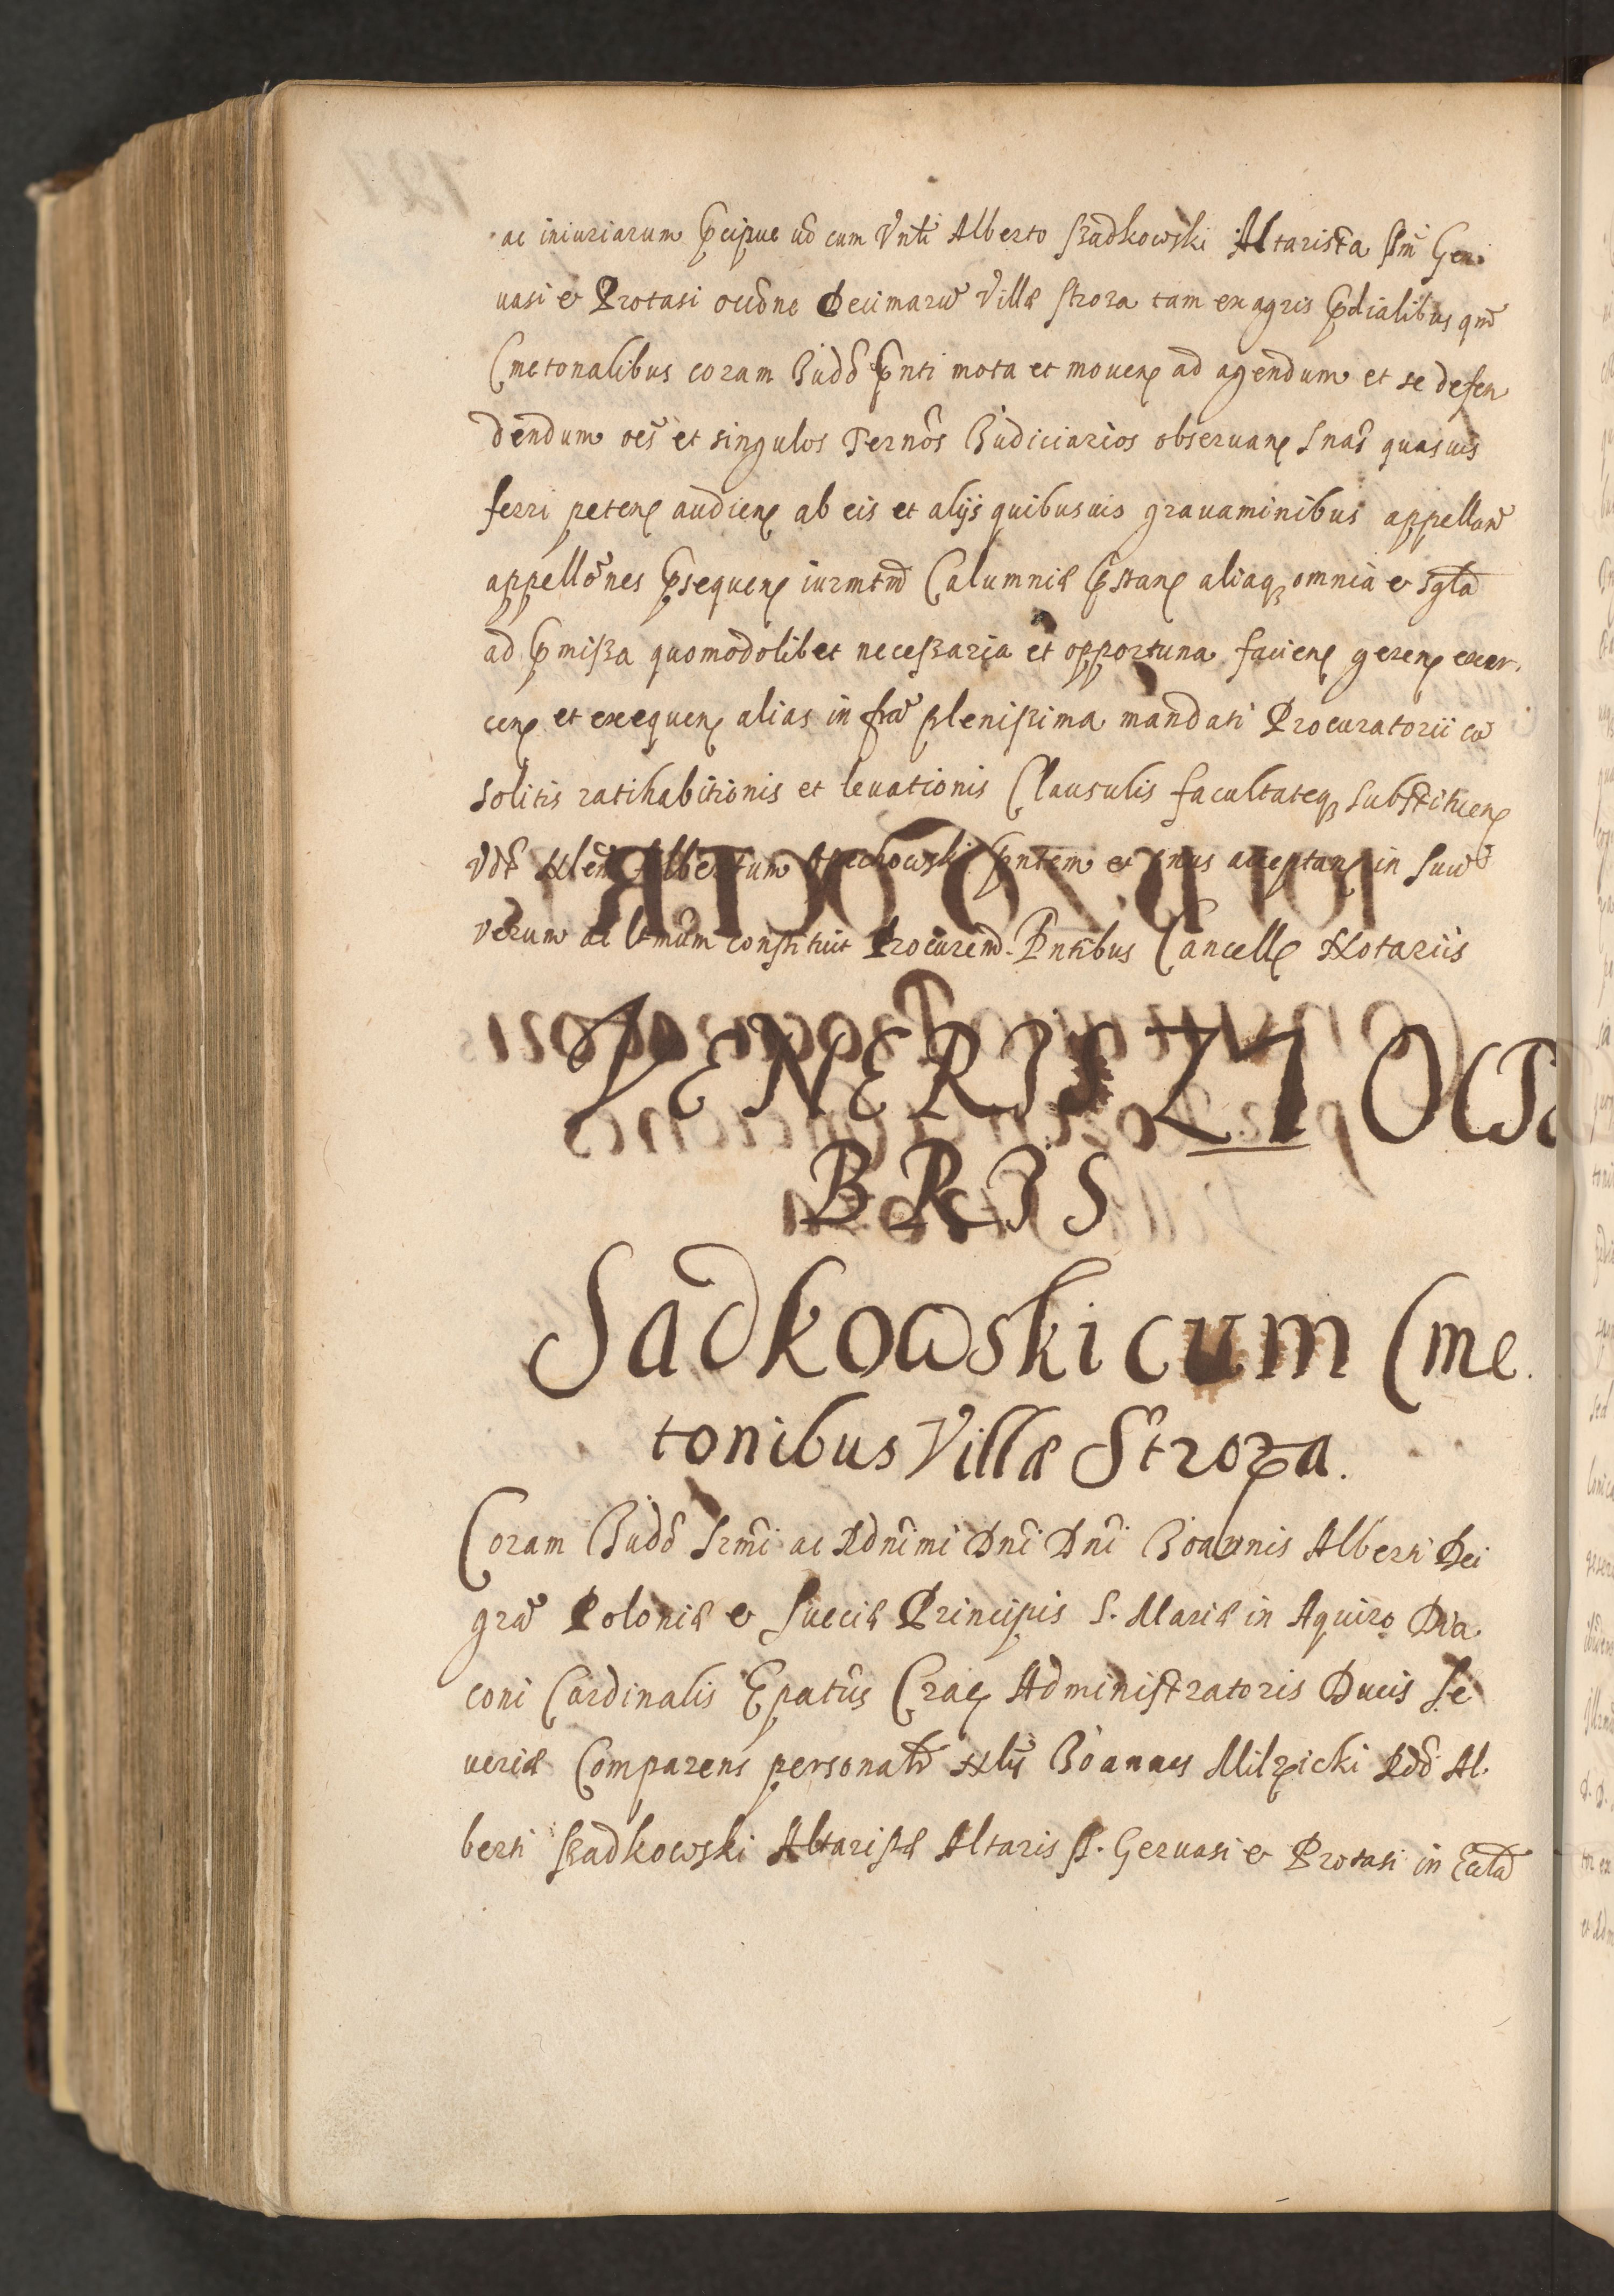 ac iniuriarum p̄cipue v̄o cum Vnb̃li Alberto Szadkowski Altarista SSm̃ Ger.
uasi & Protasi occõne Decimarũ Villæ Stroza tam ex agris p̄dialibus qm̃
Cmetonalibus coram Iudõ p̄nti mota et mouenꝭ ad agendum et se defen
dendum oẽs et singulos Termõs Iudiciarios obseruanꝭ Snãs quasuis
ferri petenꝭ audienꝭ ab eis et alijs quibusuis grauaminibus appellanꝭ
appellõnes p̄sequenꝭ iurmtm̃ Calumniæ p̄standꝭ aliaqꝫ omnia & sglã
ad p̄missa quomodolibet necessaria et opportuna facienꝭ gerenꝭ exer.
cenꝭ et exequenꝭ alias in frã plenissima mandati Procuratorii cũ
solitis ratihabitionis et leuationis Clausulis facultateqꝫ substituenꝭ
Nlem̃ Albertum p̄ntem et onus acceptanꝭ in suũ
verum ac ltmũm constituit Procurem̃. Pntibus Cancellꝭ Notariis
VENERIS 21 Octo
BRIS
Sadkowski cum Cme.
tonibus Villæ Stroza.
Coram Iudõ Srm̃i ac Rdm̃imi Dnĩ Dnĩ Ioannis Alberti Dei
grã Poloniæ & Sueciæ Principis S. Mariæ in Aquiro Dia
coni Cardinalis Epatûs Cracꝭ Administratoris Ducis Se
ueriæ Comparens personalr̃ Nlis̃ Ioannes Milzicki Rdõ Al.
berti Szadkowski Altaristæ Altaris SS. Geruasi & Protasi in Eccla͠